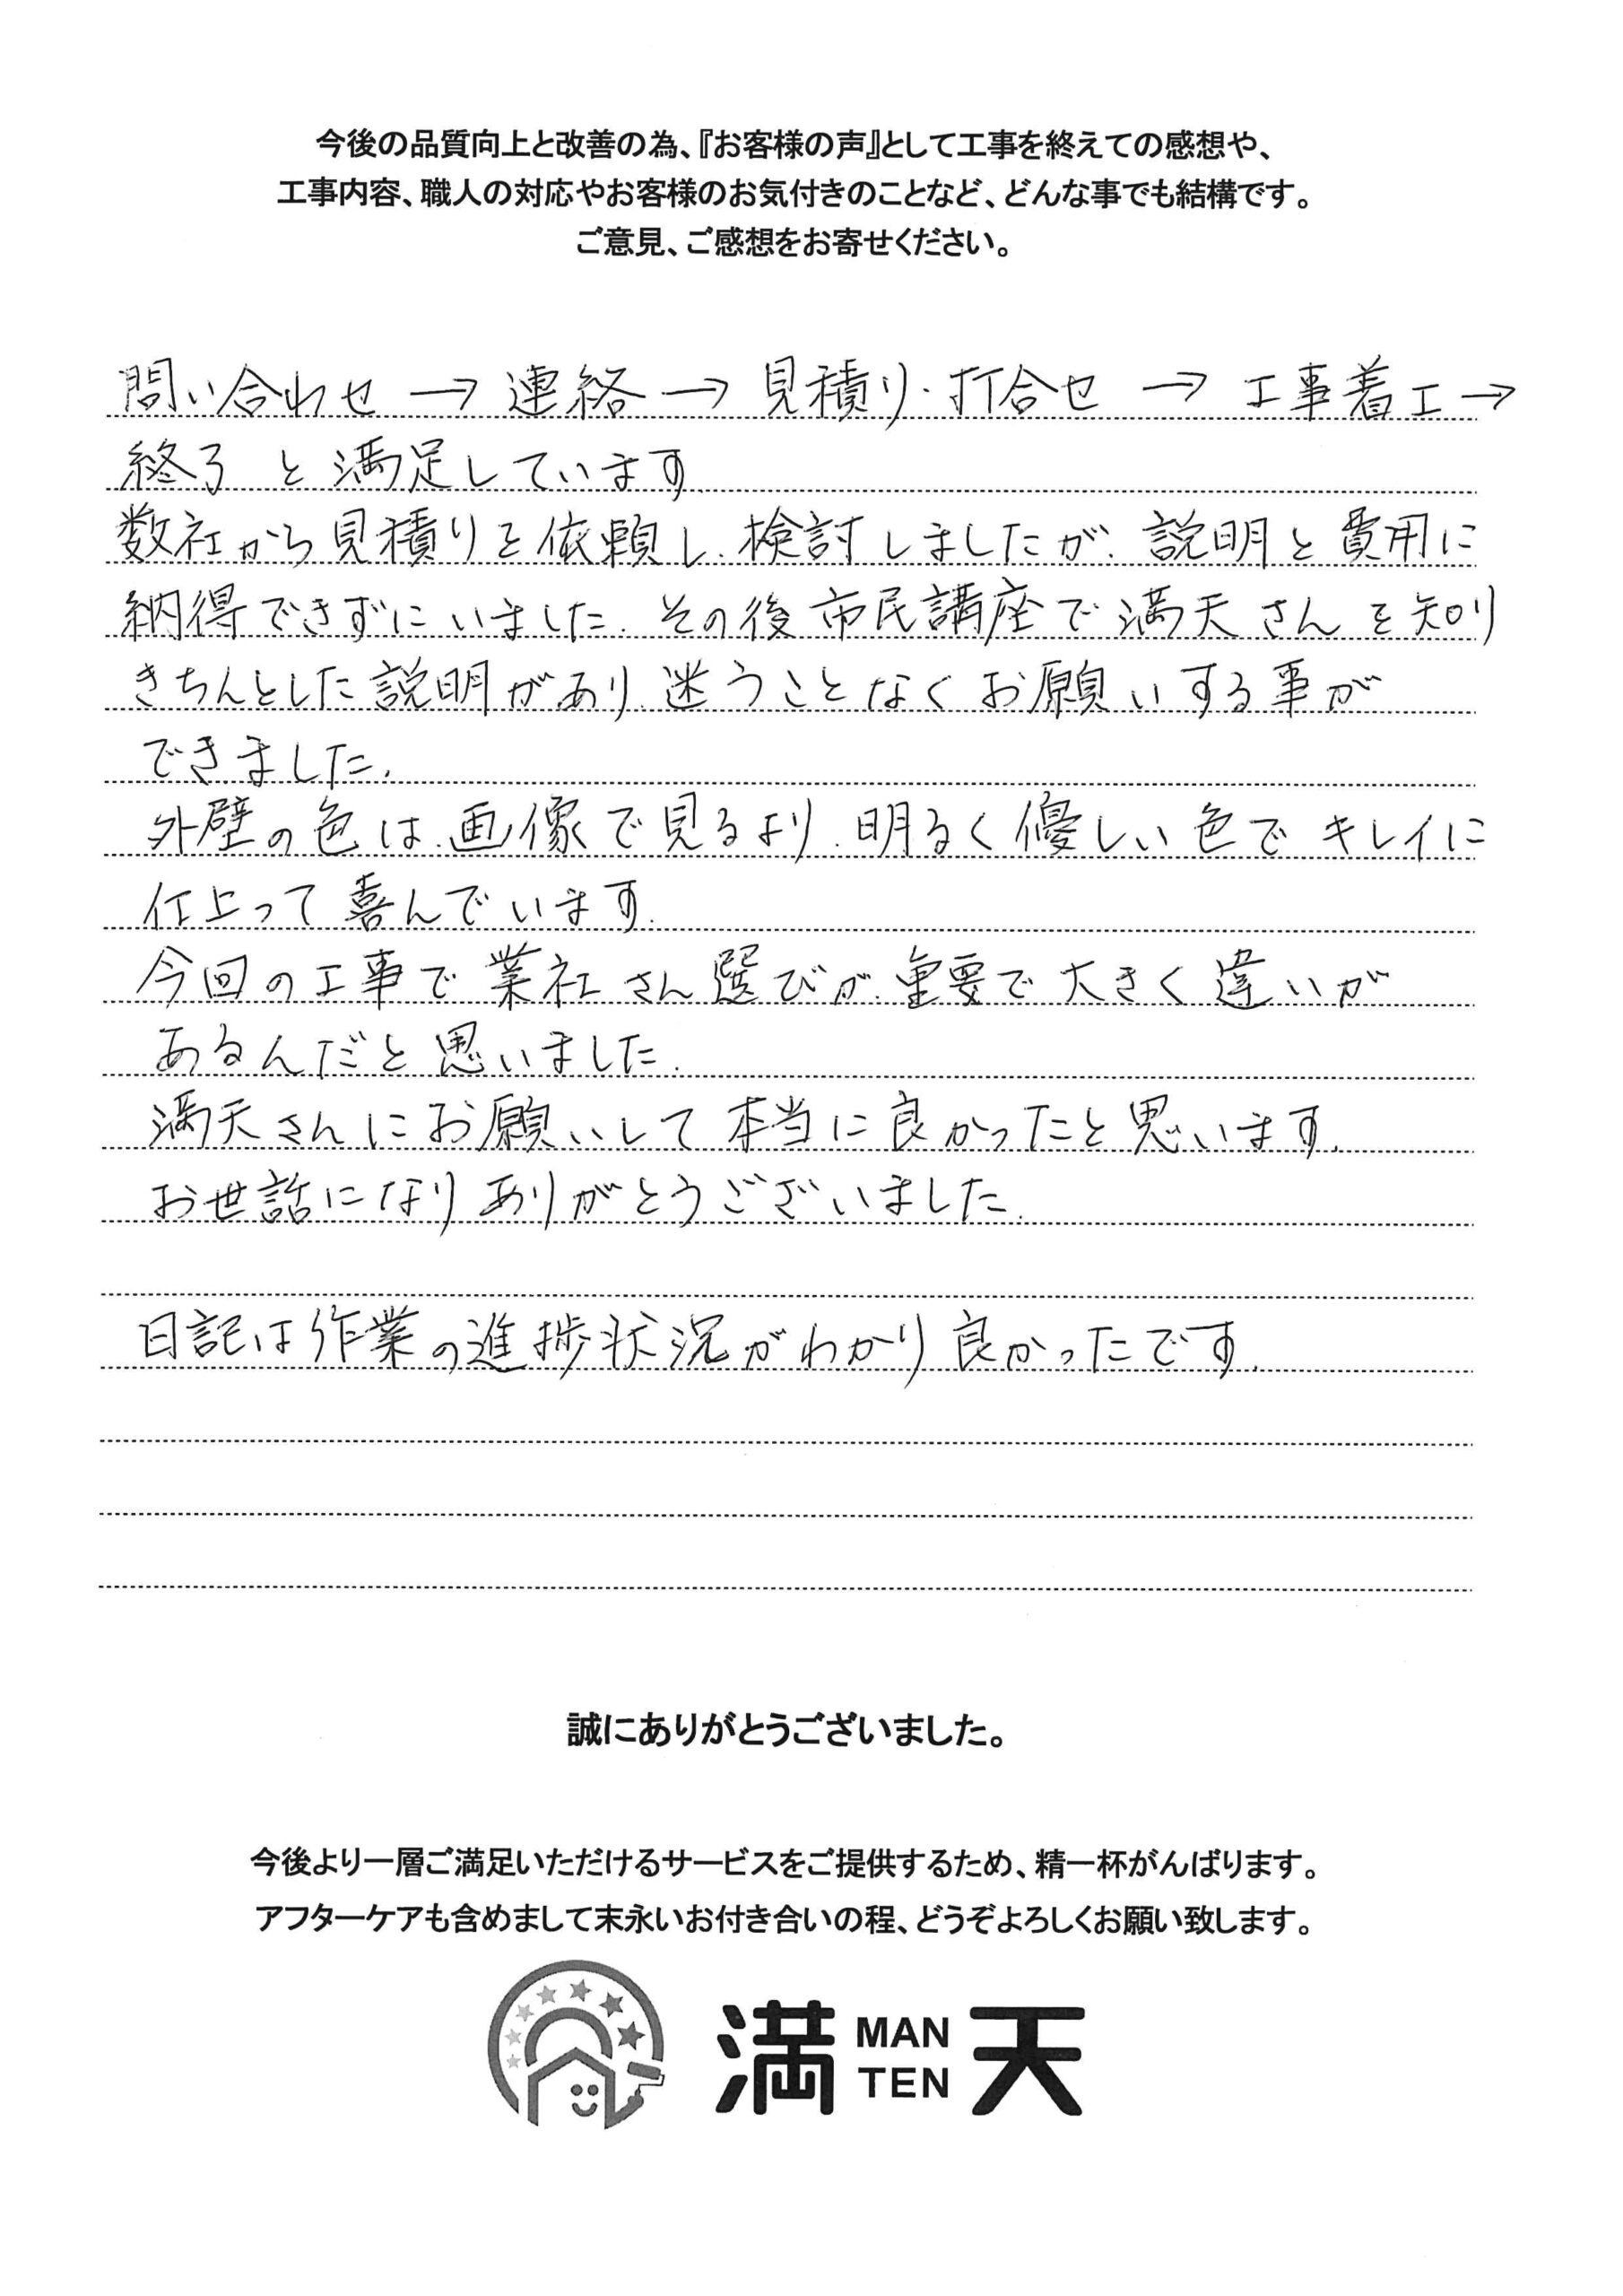 今後の品質向上と改善の為、『お客様の声』として工事を終えての感想や、
工事内容、職人の対応やお客様のお気付きのことなど、どんな事でも結構です。
ご意見、ご感想をお寄せください。
問い合わせ→連絡→見積り・打合せ→工事着工→
終了 と満足しています.
数社から見積りを依頼し、検討しましたが、説明と費用に
納得できずにいました. その後市民講座で満天さんを知り
きちんとした説明があり、迷うことなくお願いする事が
できました.
外壁の色は、画像で見るより、明るく優しい色でキレイに
仕上って喜んでいます.
今回の工事で業社さん選びが、重要で大きく違いが
あるんだと思いました.
満天さんにお願いして本当に良かったと思います.
お世話になりありがとうございました.
日記は作業の進捗状況がわかり良かったです.
誠にありがとうございました。
今後より一層ご満足いただけるサービスをご提供するため、精一杯がんばります。
アフターケアも含めまして末永いお付き合いの程、どうぞよろしくお願い致します。
満 MAN TEN 天